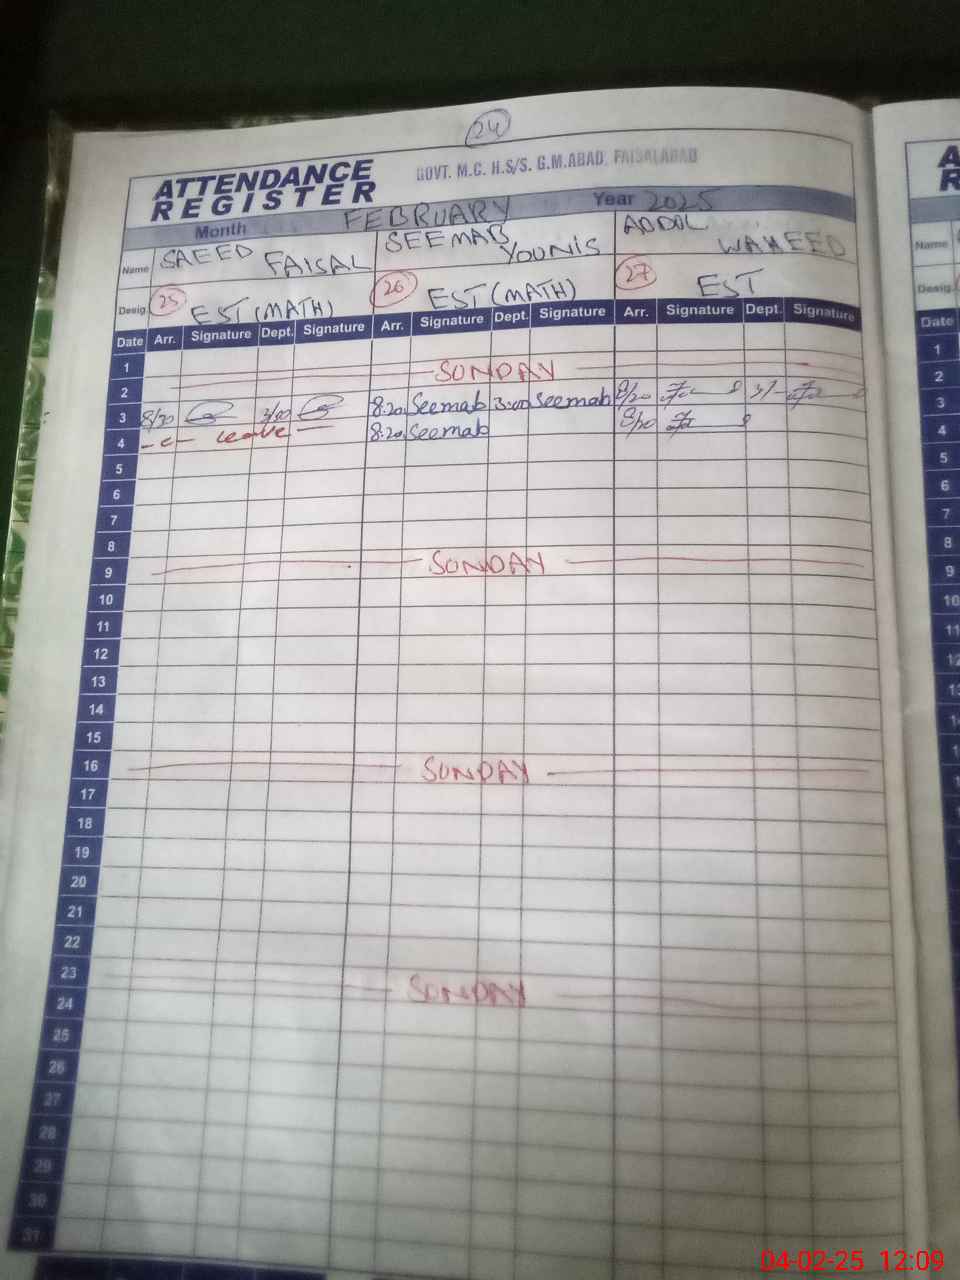 24
ATTENDANCE
REGISTER
GOVT. M.C. H.S/S. G.M.ABAD, FAISALABAD
Month FEBRUARY Year 2025
Name SAEED FAISAL SEEMAB YOUNIS ABDUL WAHEED
Desig. 25 EST (MATH) 26 EST (MATH) 27 EST
Date Arr. Signature Dept. Signature Arr. Signature Dept. Signature Arr. Signature Dept. Signature
1
2 SUNDAY
3 8/20 3/00 8:20 Seemab 3:00 Seemab 8/20 3/-
4 - c - leave - 8:20 Seemab
5
6
7
8
9 SUNDAY
10
11
12
13
14
15
16 SUNDAY
17
18
19
20
21
22
23 SUNDAY
24
25
26
27
28
29
30
31
A
R
Name
Desig.
Date
1
2
3
4
5
6
7
8
9
10
11
12
13
04-02-25 12:09